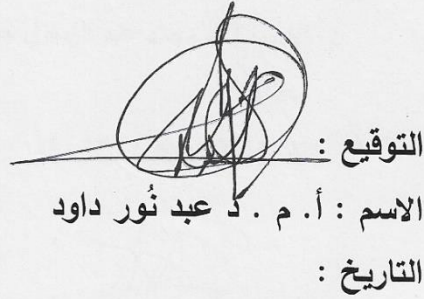 التوقيع :
الاسم : أ. م . د عبد نُور داود
التاريخ :